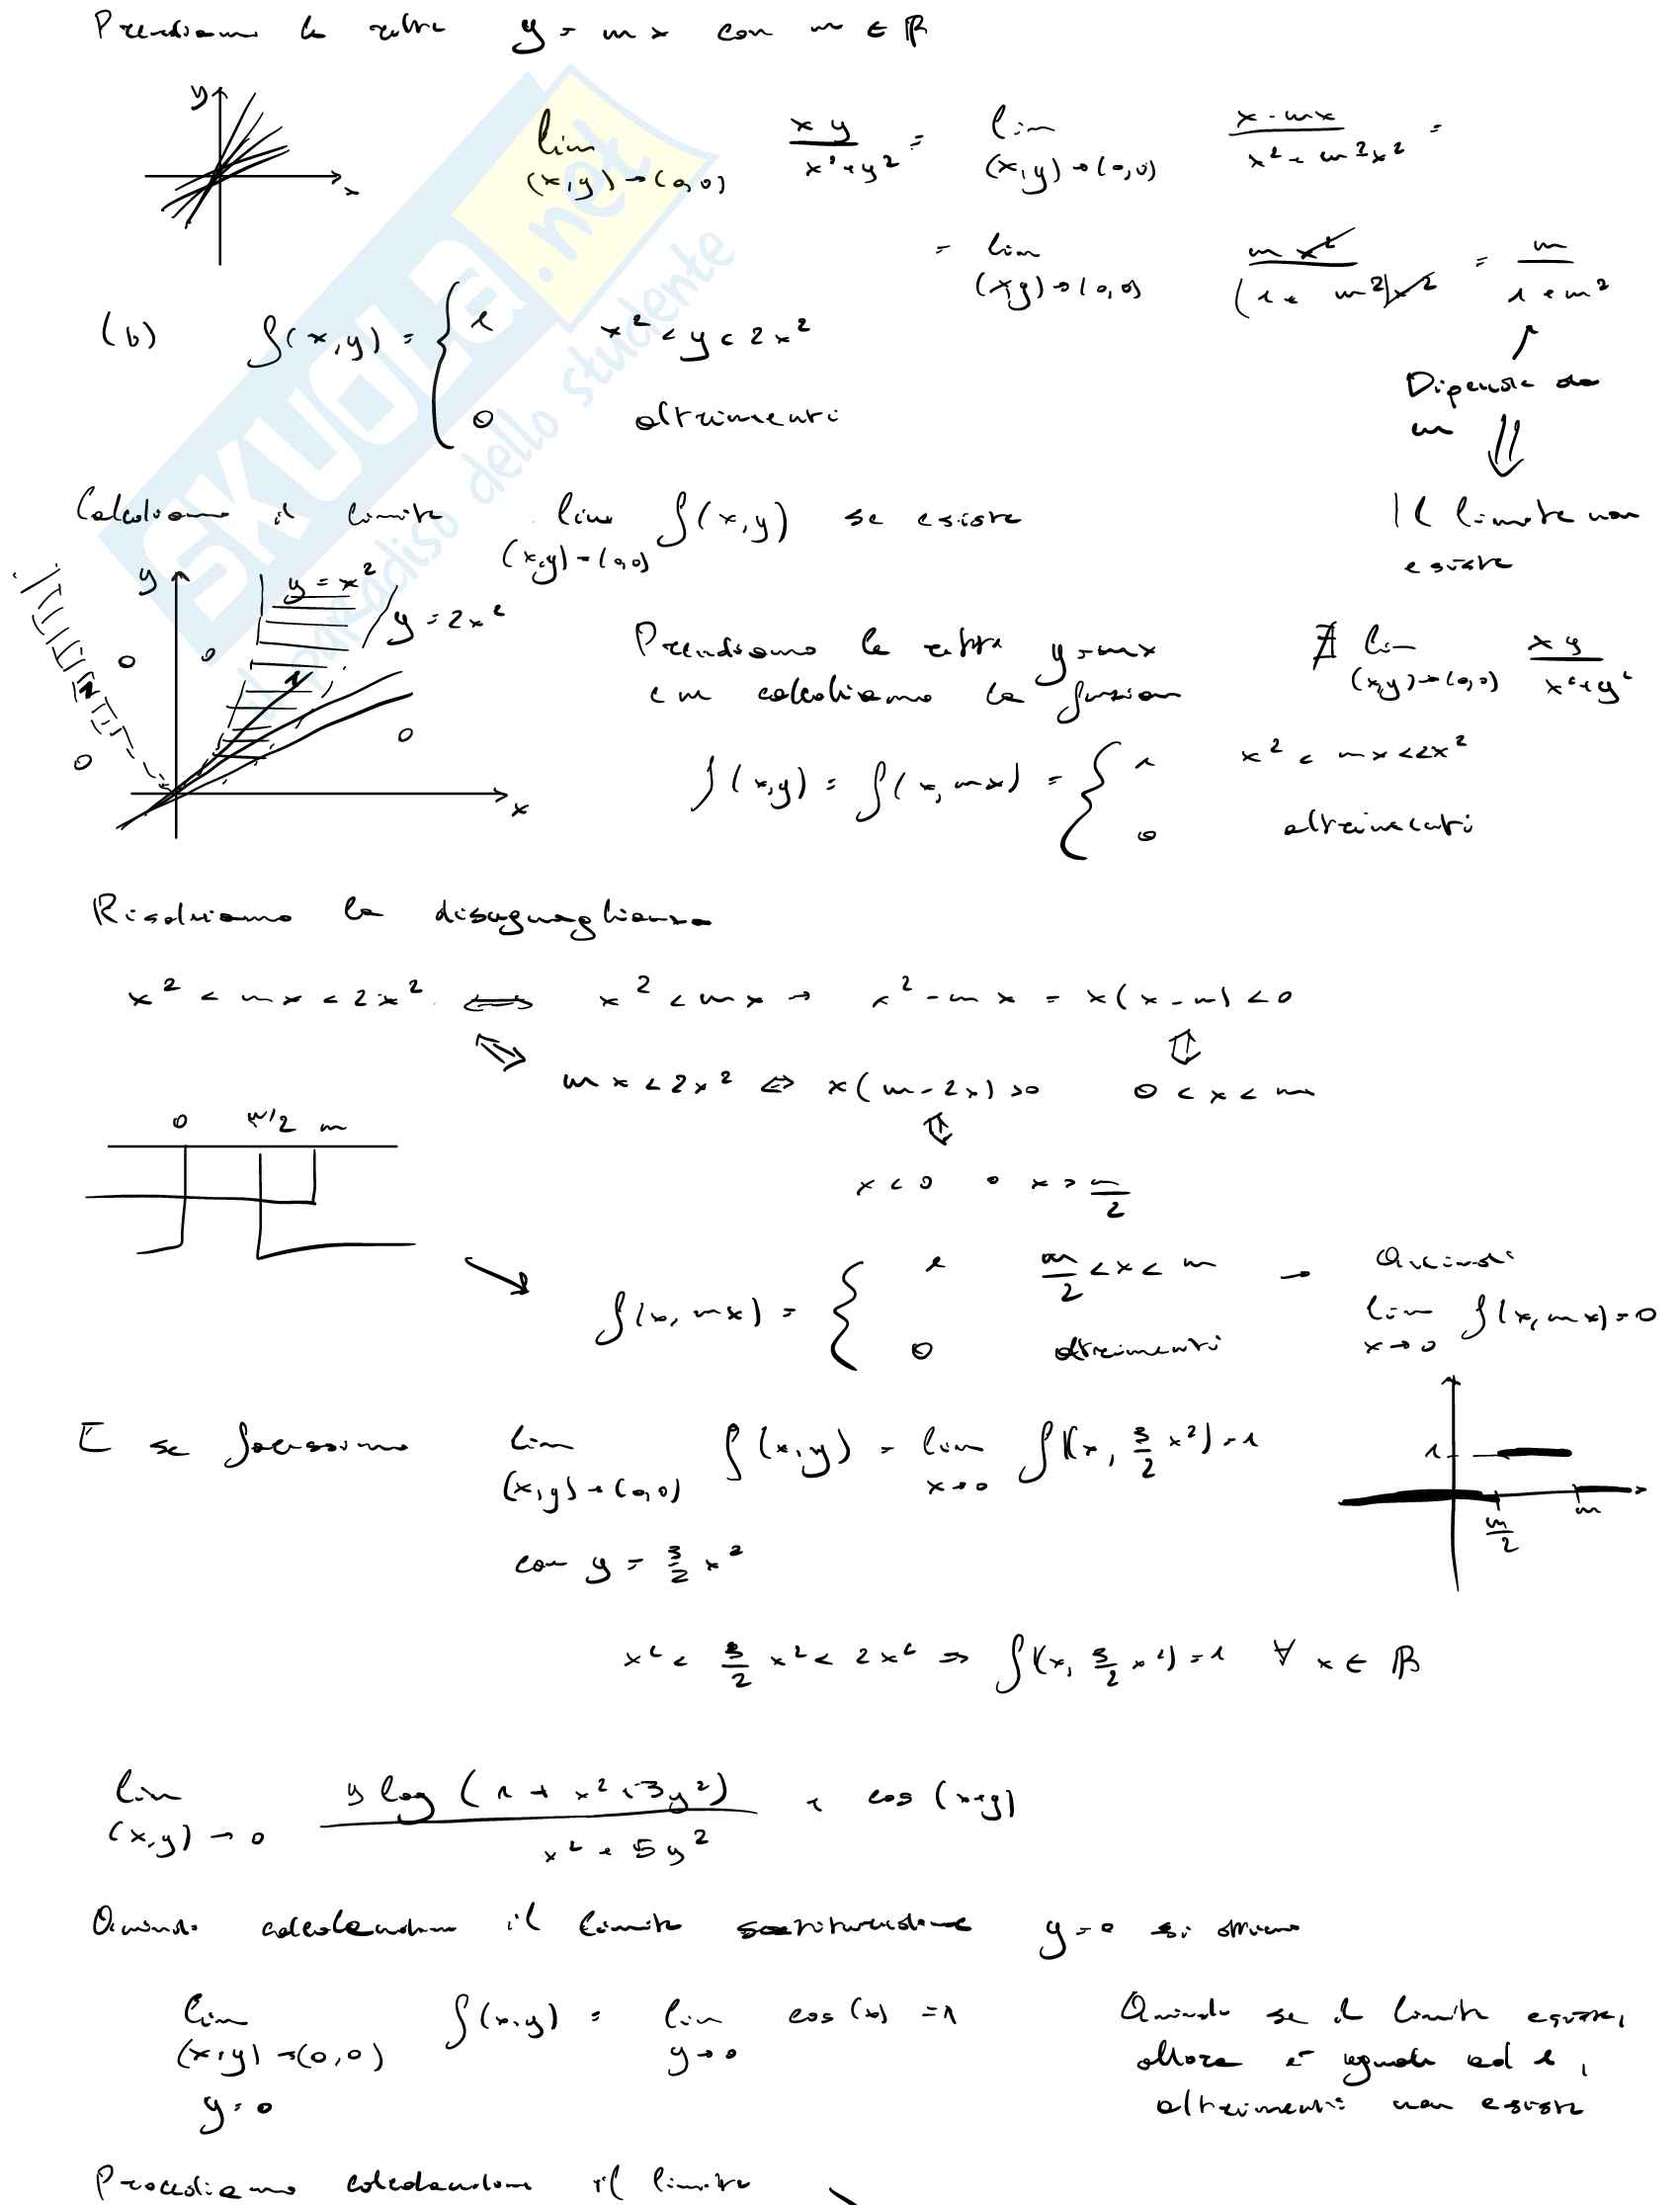 Prendiamo la retta y = mx con m ∈ ℝ
y
x
lim (x,y)→(0,0) xy/(x²+y²) = lim (x,y)→(0,0) x·mx/(x²+m²x²) =
= lim (x,y)→(0,0) mx²/((1+m²)x²) = m/(1+m²)
Dipende da
m
⇓
Il limite non
esiste
∄ lim (x,y)→(0,0) xy/(x²+y²)
(b) f(x,y) = { 1 x² < y < 2x²
0 altrimenti
Calcoliamo il limite lim (x,y)→(0,0) f(x,y) se esiste
y
y = x²
y = 2x²
0 0
1 1
0 0
x
Prendiamo la retta y=mx
e ne calcoliamo la funzion
f(x,y) = f(x,mx) = { 1 x² < mx < 2x²
0 altrimenti
Risolviamo la disuguaglianza
x² < mx < 2x² ⟺ x² < mx → x² - mx = x(x-m) < 0
⇕
⇔ mx < 2x² ⇔ x(m-2x) > 0 0 < x < m
⇕
x < 0 o x > m/2
0 m/2 m
f(x,mx) = { 1 m/2 < x < m → Quindi
0 altrimenti lim x→0 f(x,mx) = 0
E se facessimo lim (x,y)→(0,0) f(x,y) = lim x→0 f(x, 3/2 x²) = 1
con y = 3/2 x²
1
m/2 m
x² < 3/2 x² < 2x² ⇒ f(x, 3/2 x²) = 1 ∀ x ∈ ℝ
lim (x,y)→0 y log(1+x²+3y²)/(x²+5y²) + cos(x+y)
Quindi calcolando il limite sostituendone y=0 si ottiene
lim (x,y)→(0,0) y=0 f(x,y) = lim y→0 cos(x) = 1
Quindi se il limite esiste,
allora è uguale ad 1,
altrimenti non esiste
Procediamo calcolandone il limite
SKUOLA.net
il paradiso dello studente